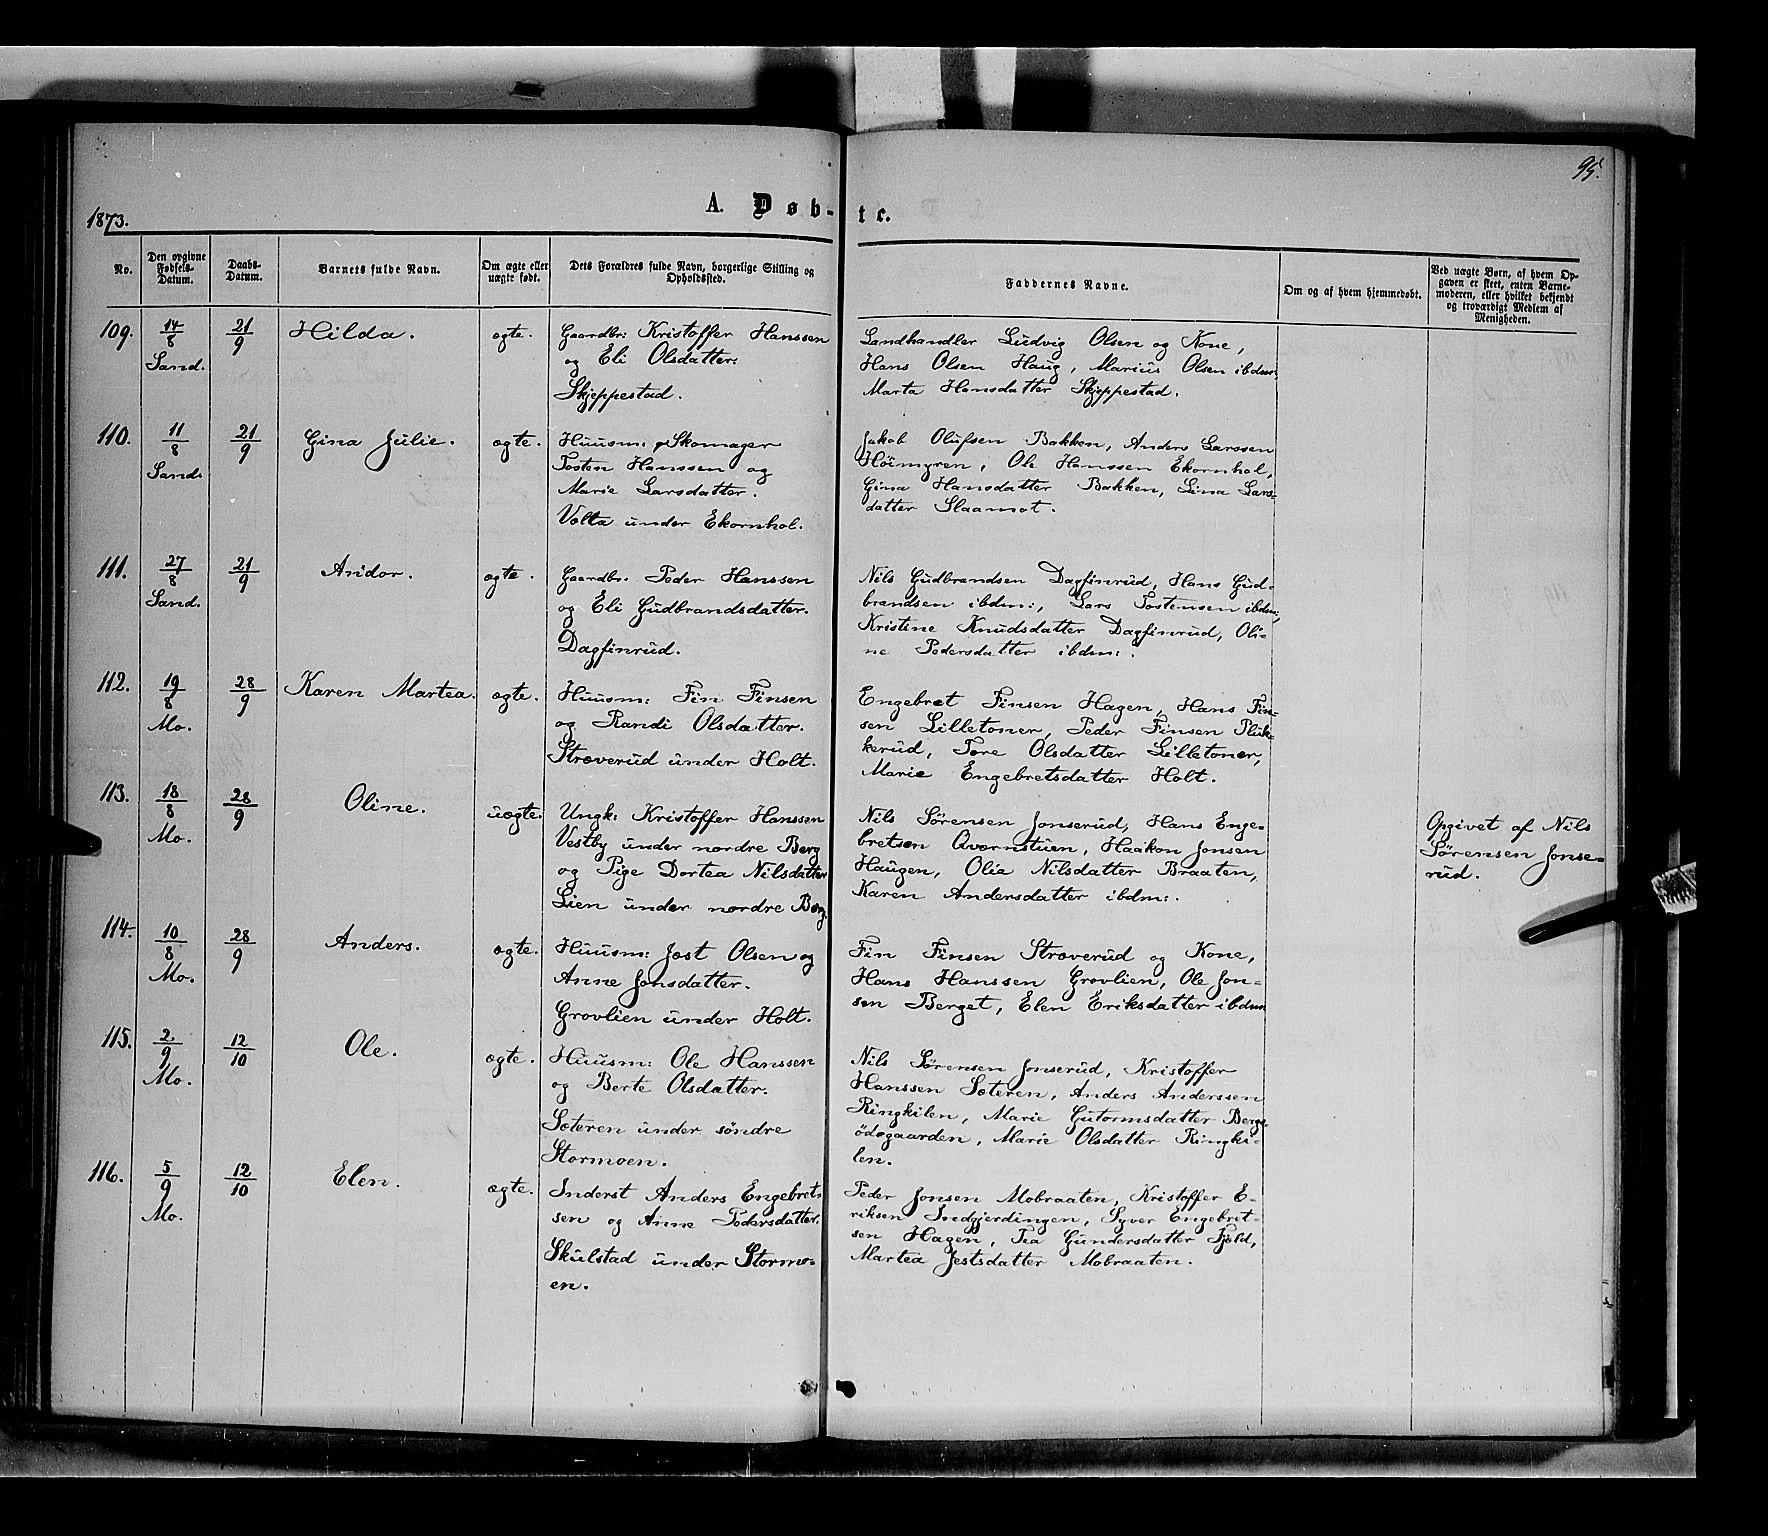 95.
1873.
A. Døb-
te.
No.
Den opgivne
Fødsels-
Datum.
Daabs-
Datum.
Barnets fulde Navn.
Om ægte eller
uægte født.
Dets Forældres fulde Navn, borgerlige Stilling og
Opholdssted.
Faddernes Navne.
Om og af hvem hjemmedøbt.
Ved uægte Børn, af hvem Op-
gaven er skeet, enten Barne-
moderen, eller hvilket bekjendt
og troværdigt Medlem af
Menigheden.
109.
14/8
Sand.
21/9
Hilda.
ægte.
Gaardbr: Kristoffer Hanssen
og Eli Olsdatter:
Skjeppestad.
Landhandler Ludvig Olsen og Kone,
Hans Olsen Haug, Marius Olsen ibdm:
Marta Hansdatter Skjeppestad.
110.
11/8
Sand.
21/9
Gina Julie.
ægte.
Huusm: & Skomager
Tosten Hanssen og
Marie Larsdatter.
Volta under Ekornhol.
Jakob Olufsen Bakken, Anders Larssen
Höimyren, Ole Hanssen Ekornhol,
Gina Hansdatter Bakken, Lina Lars-
datter Slaamot.
111.
27/8
Sand.
21/9
Andor.
ægte.
Gaardbr: Peder Hanssen
og Eli Gudbrandsdatter.
Dagfinrud.
Nils Gudbrandsen Dagfinrud, Hans Gud-
brandsen ibdm:, Lars Tostensen ibdm:,
Kristine Knudsdatter Dagfinrud, Oli-
ne Pedersdatter ibdm:.
112.
19/8
Mo.
28/9
Karen Martea.
ægte.
Huusm: Fin Finsen
og Randi Olsdatter.
Stræverud under Holt.
Engebret Finsen Hagen, Hans Fin-
sen Lilletoner, Peder Finsen Pluk-
kerud, Tore Olsdatter Lilletoner,
Marie Engebretsdatter Holt.
113.
18/8
Mo.
28/9
Oline.
uægte.
Ungk: Kristoffer Hanssen
Vestby under nordre Berg
og Pige Dortea Nilsdatter
Lien under nordre Berg.
Nils Sörensen Jonserud, Hans Enge-
bretsen Qvernstuen, Haakon Jonsen
Haugen, Olia Nilsdatter Braaten,
Karen Andersdatter ibdm:.
Opgivet af Nils
Sörensen Jonse-
rud.
114.
10/8
Mo.
28/9
Anders.
ægte.
Huusm: Jost Olsen og
Anne Jonsdatter.
Grovlien under Holt.
Fin Finsen Stræverud og Kone,
Hans Hanssen Grovlien, Ole Jon-
sen Berget, Elen Eriksdatter ibdm
115.
2/9
Mo.
12/10
Ole.
ægte.
Huusm: Ole Hanssen
og Berte Olsdatter.
Sæteren under söndre
Stormoen.
Nils Sörensen Jonserud, Kristoffer
Hanssen Sæteren, Anders Anderssen
Ringkilen, Marie Gutormsdatter Bergs-
ödegaarden, Marie Olsdatter Ringki-
len.
116.
5/9
Mo.
12/10
Elen.
ægte.
Inderst Anders Engebret-
sen og Anne Pedersdatter.
Skulstad under Stormo-
en.
Peder Jonsen Mobraaten, Kristoffer E-
riksen Indgjerdingen, Syver Engebret-
sen Hagen, Tea Gundersdatter Fjeld,
Martea Jestsdatter Mobraaten.